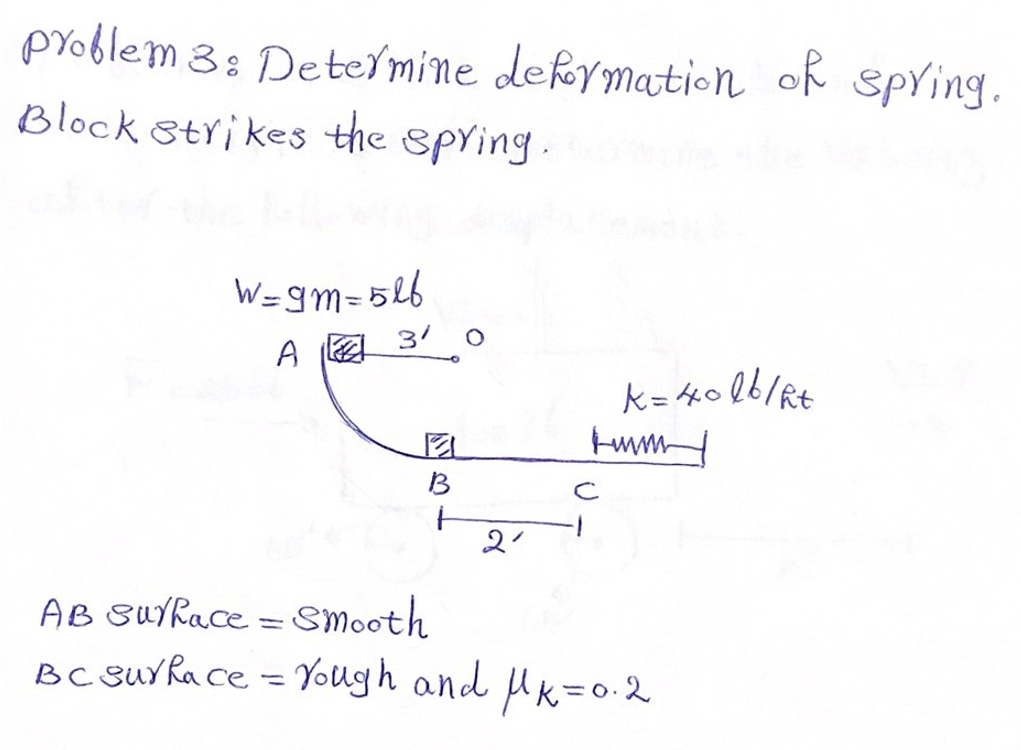 Problem 3: Determine deformation of spring.
Block strikes the spring.
W=gm=5lb
A 3' O
K=40 lb/ft
B C
2'
AB surface = smooth
BC surface = rough and μK=0.2